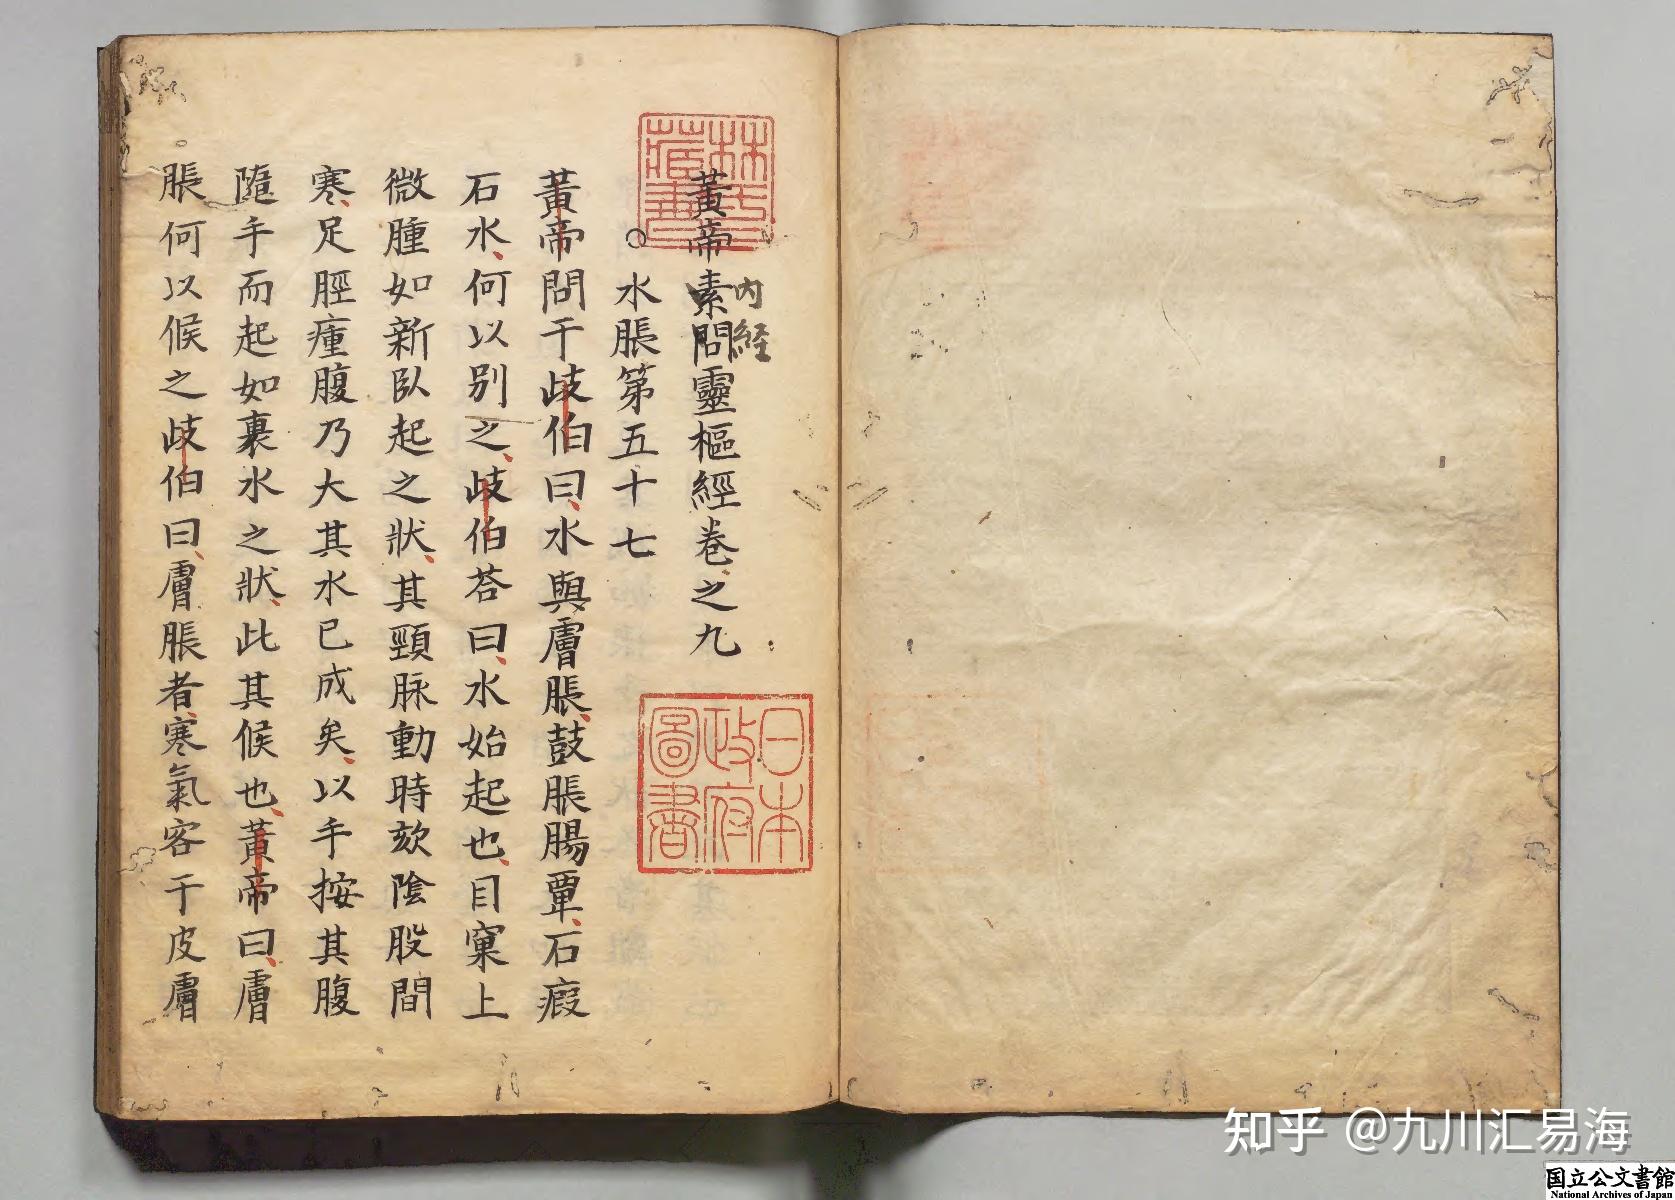 黃帝素問靈樞經卷之九
内経
水脹第五十七
黃帝問于歧伯曰水與膚脹鼓脹腸覃石瘕
石水何以别之歧伯荅曰水始起也目窠上
微腫如新臥起之狀其頸脉動時欬陰股間
寒足脛瘇腹乃大其水已成矣以手按其腹
隨手而起如裹水之狀此其候也黃帝曰膚
脹何以候之歧伯曰膚脹者寒氣客于皮膚
林氏藏書
日本政府圖書
知乎 @九川汇易海
国立公文書館
National Archives of Japan